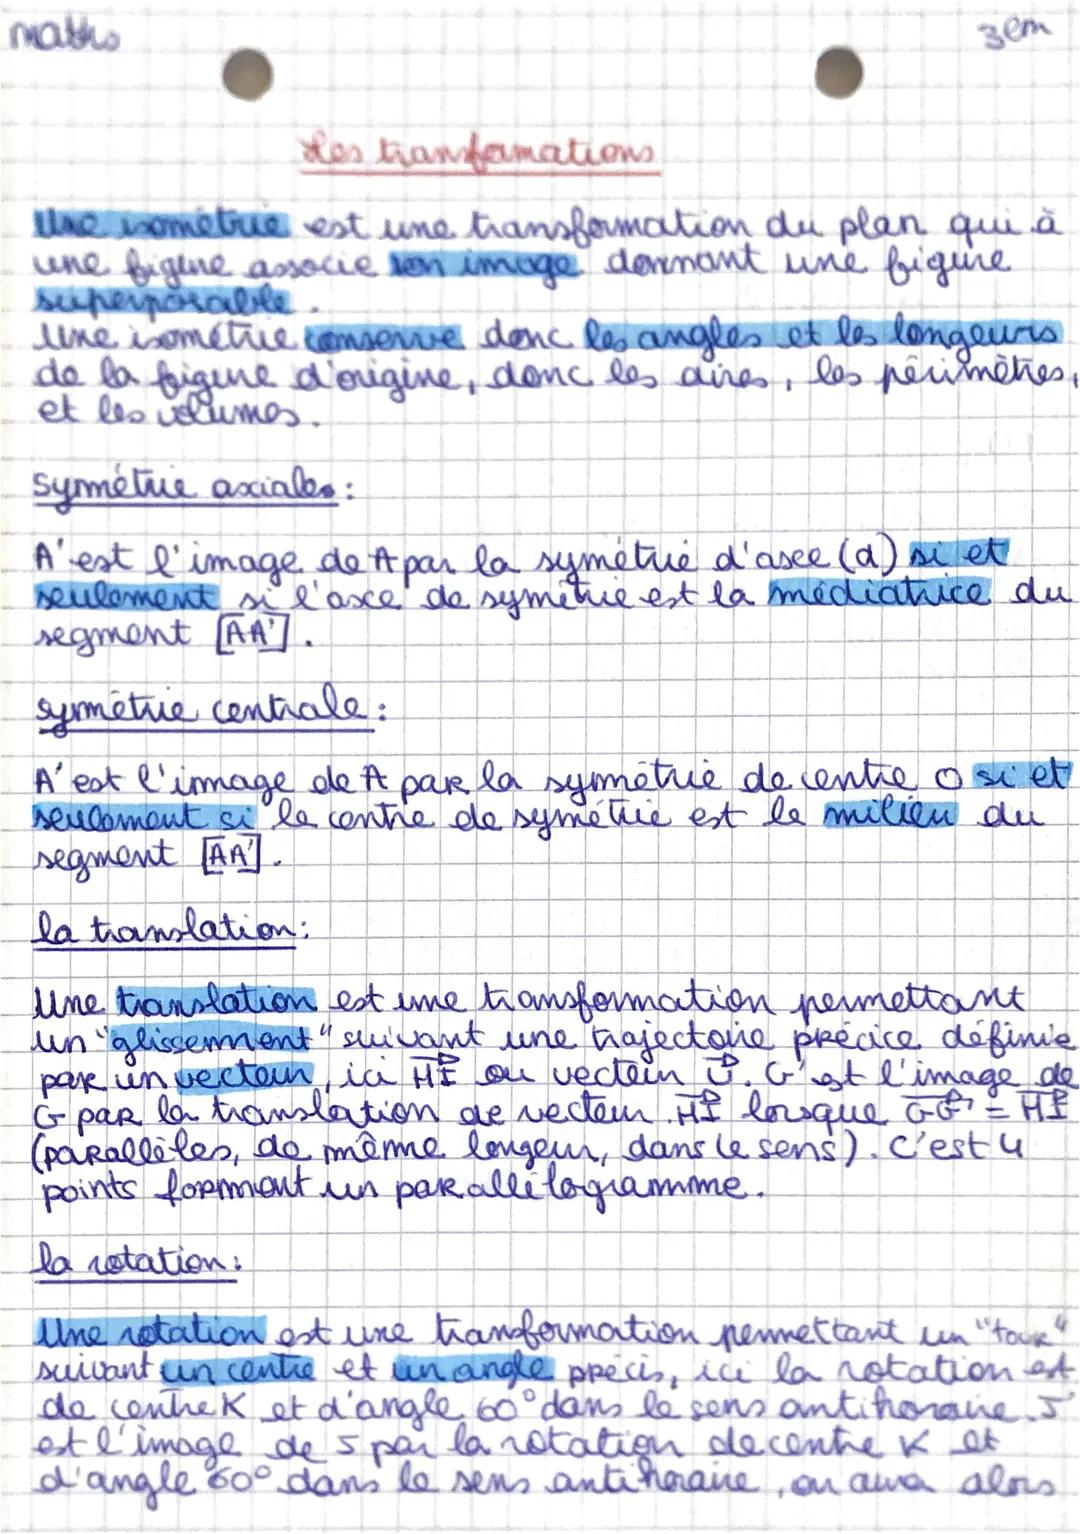 maths
3em
Les transformations
Une isométrie est une transformation du plan qui à
une figure associe son image donnant une figure
superposable.
Une isométrie conserve donc les angles et les longeurs
de la figure d'origine, donc les aires, les périmètres,
et les volumes.
symétrie axiales:
A' est l'image de A par la symétrie d'axe (d) si et
seulement si l'axe de symétrie est la médiatrice du
segment [AA'].
symétrie centrale:
A' est l'image de A par la symétrie de centre O si et
seulement si le centre de symétrie est le milieu du
segment [AA'].
la translation:
Une translation est une transformation permettant
un "glissement" suivant une trajectoire précice définie
par un vecteur, ici HI ou vecteur U. G' est l'image de
G par la translation de vecteur HI lorsque GG' = HI
(parallèles, de même longeur, dans le sens). C'est 4
points forment un parallélogramme.
la rotation:
Une rotation est une transformation permettant un "tour"
suivant un centre et un angle précis, ici la rotation est
de centre K et d'angle 60° dans le sens antihoraire. J'
est l'image de J par la rotation de centre K et
d'angle 60° dans le sens antihoraire, on aura alors